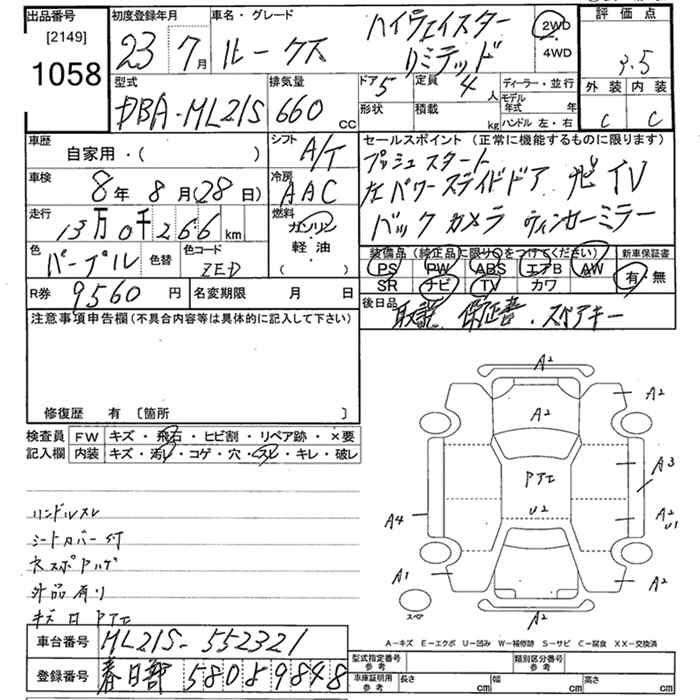 出品番号 [2149] 1058
初度登録年月 23年 7月
車名・グレード ルークス ハイウェイスター リミテッド
2WD
4WD
評価点 3.5
外装 C 内装 C
型式 DBA-ML21S
排気量 660 CC
ドア 5 定員 4人
形状 積載 kg
ディーラー・並行
モデル年式 年
ハンドル 左・右
車歴 自家用・( )
シフト A/T
車検 8年8月(28日)
冷房 AAC
走行 13万0千266km
燃料 ガソリン
軽・油
( )
色 パープル 色替
色コード ZED
R券 9560円
名変期限 月 日
セールスポイント(正常に機能するものに限ります)
プッシュスタート
左パワースライドドア ナビTV
バックカメラ ウィンカーミラー
装備品(純正品に限り○をつけてください) 新車保証書
PS PW ABS エアB AW 有・無
SR ナビ TV カワ
後日品 取説 保証書・スペアキー
注意事項申告欄(不具合内容等は具体的に記入して下さい)
修復歴 有 [箇所 ]
検査員 FW キズ・飛石・ヒビ割・リペア跡・×要
記入欄 内装 キズ・汚レ・コゲ・穴・スレ・キレ・破レ
ハンドルスレ
シートカバー付
外品有り
A2
A2 A2
PTE A3
U2
A4 A2 U1
A1 A2
スペア A2
A-キズ E-エクボ U-凹み W-補修跡 S-サビ C-腐食 XX-交換済
車台番号 ML21S-552321
登録番号 春日部 580 ま 9848
型式指定番号 参考 類別区分番号 参考
車庫証明用 参考 長さ cm 幅 cm 高さ cm